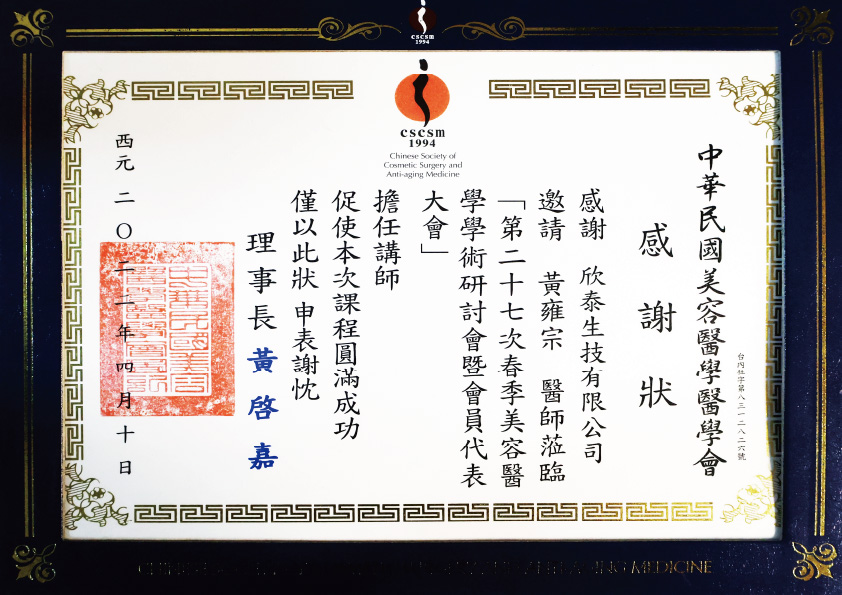 cscsm
1994
cscsm
1994
Chinese Society of
Cosmetic Surgery and
Anti-aging Medicine
台內社字第八三一二八二六號
中華民國美容醫學醫學會
感謝狀
感謝 欣泰生技有限公司
邀請 黃雍宗 醫師蒞臨
「第二十七次春季美容醫
學學術研討會暨會員代表
大會」
擔任講師
促使本次課程圓滿成功
僅以此狀 申表謝忱
理事長 黃啓嘉
西元 二〇二一年四月十日
MEDICINE